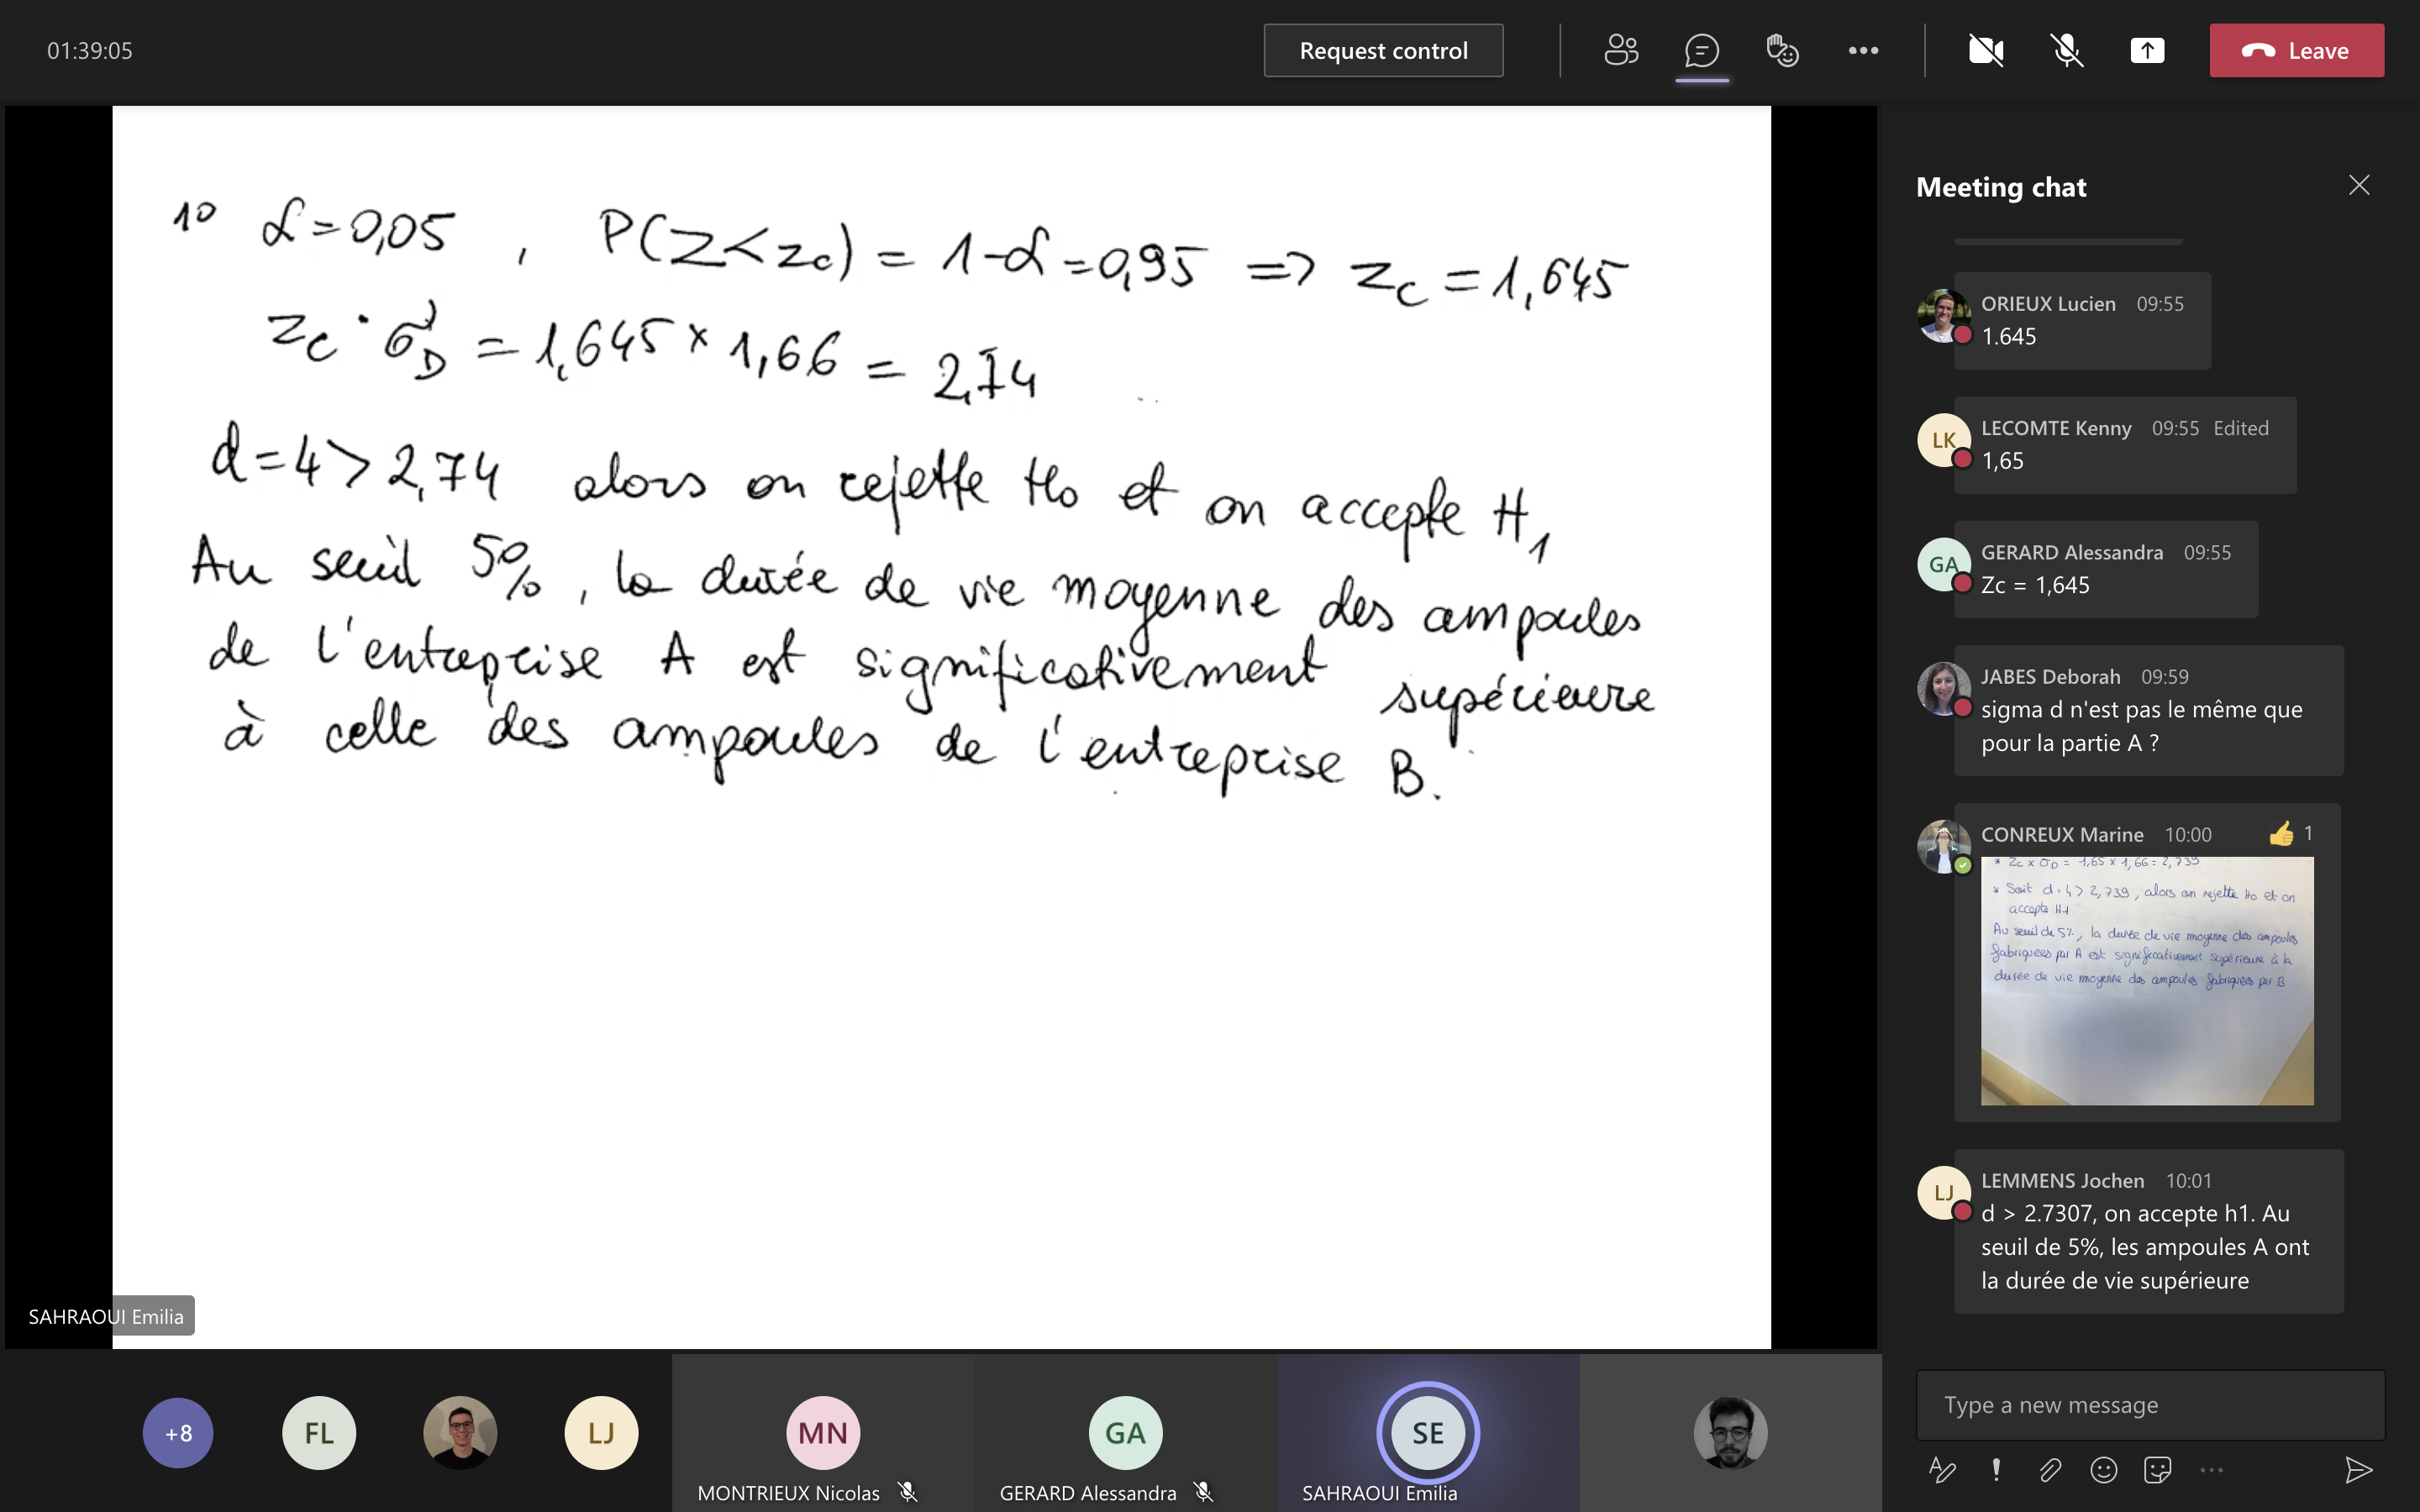 01:39:05
Request control
Leave
1° α=0,05 , P(Z<zc) = 1-α=0,95 => zc = 1,645
zc · σD = 1,645 × 1,66 = 2,74
d=4>2,74 alors on rejette H0 et on accepte H1
Au seuil 5%, la durée de vie moyenne des ampoules
de l'entreprise A est significativement supérieure
à celle des ampoules de l'entreprise B.
SAHRAOUI Emilia
+8
FL
LJ
MN
MONTRIEUX Nicolas
GA
GERARD Alessandra
SE
SAHRAOUI Emilia
Meeting chat
ORIEUX Lucien 09:55
1.645
LK
LECOMTE Kenny 09:55 Edited
1,65
GA
GERARD Alessandra 09:55
Zc = 1,645
JABES Deborah 09:59
sigma d n'est pas le même que
pour la partie A ?
CONREUX Marine 10:00 👍 1
* Zc x σD = 1,65 x 1,66 = 2,739
* Soit d=4 > 2,739, alors on rejette H0 et on
accepte H1
Au seuil de 5%, la durée de vie moyenne des ampoules
fabriquées par A est significativement supérieure à la
durée de vie moyenne des ampoules fabriquées par B
LJ
LEMMENS Jochen 10:01
d > 2.7307, on accepte h1. Au
seuil de 5%, les ampoules A ont
la durée de vie supérieure
Type a new message